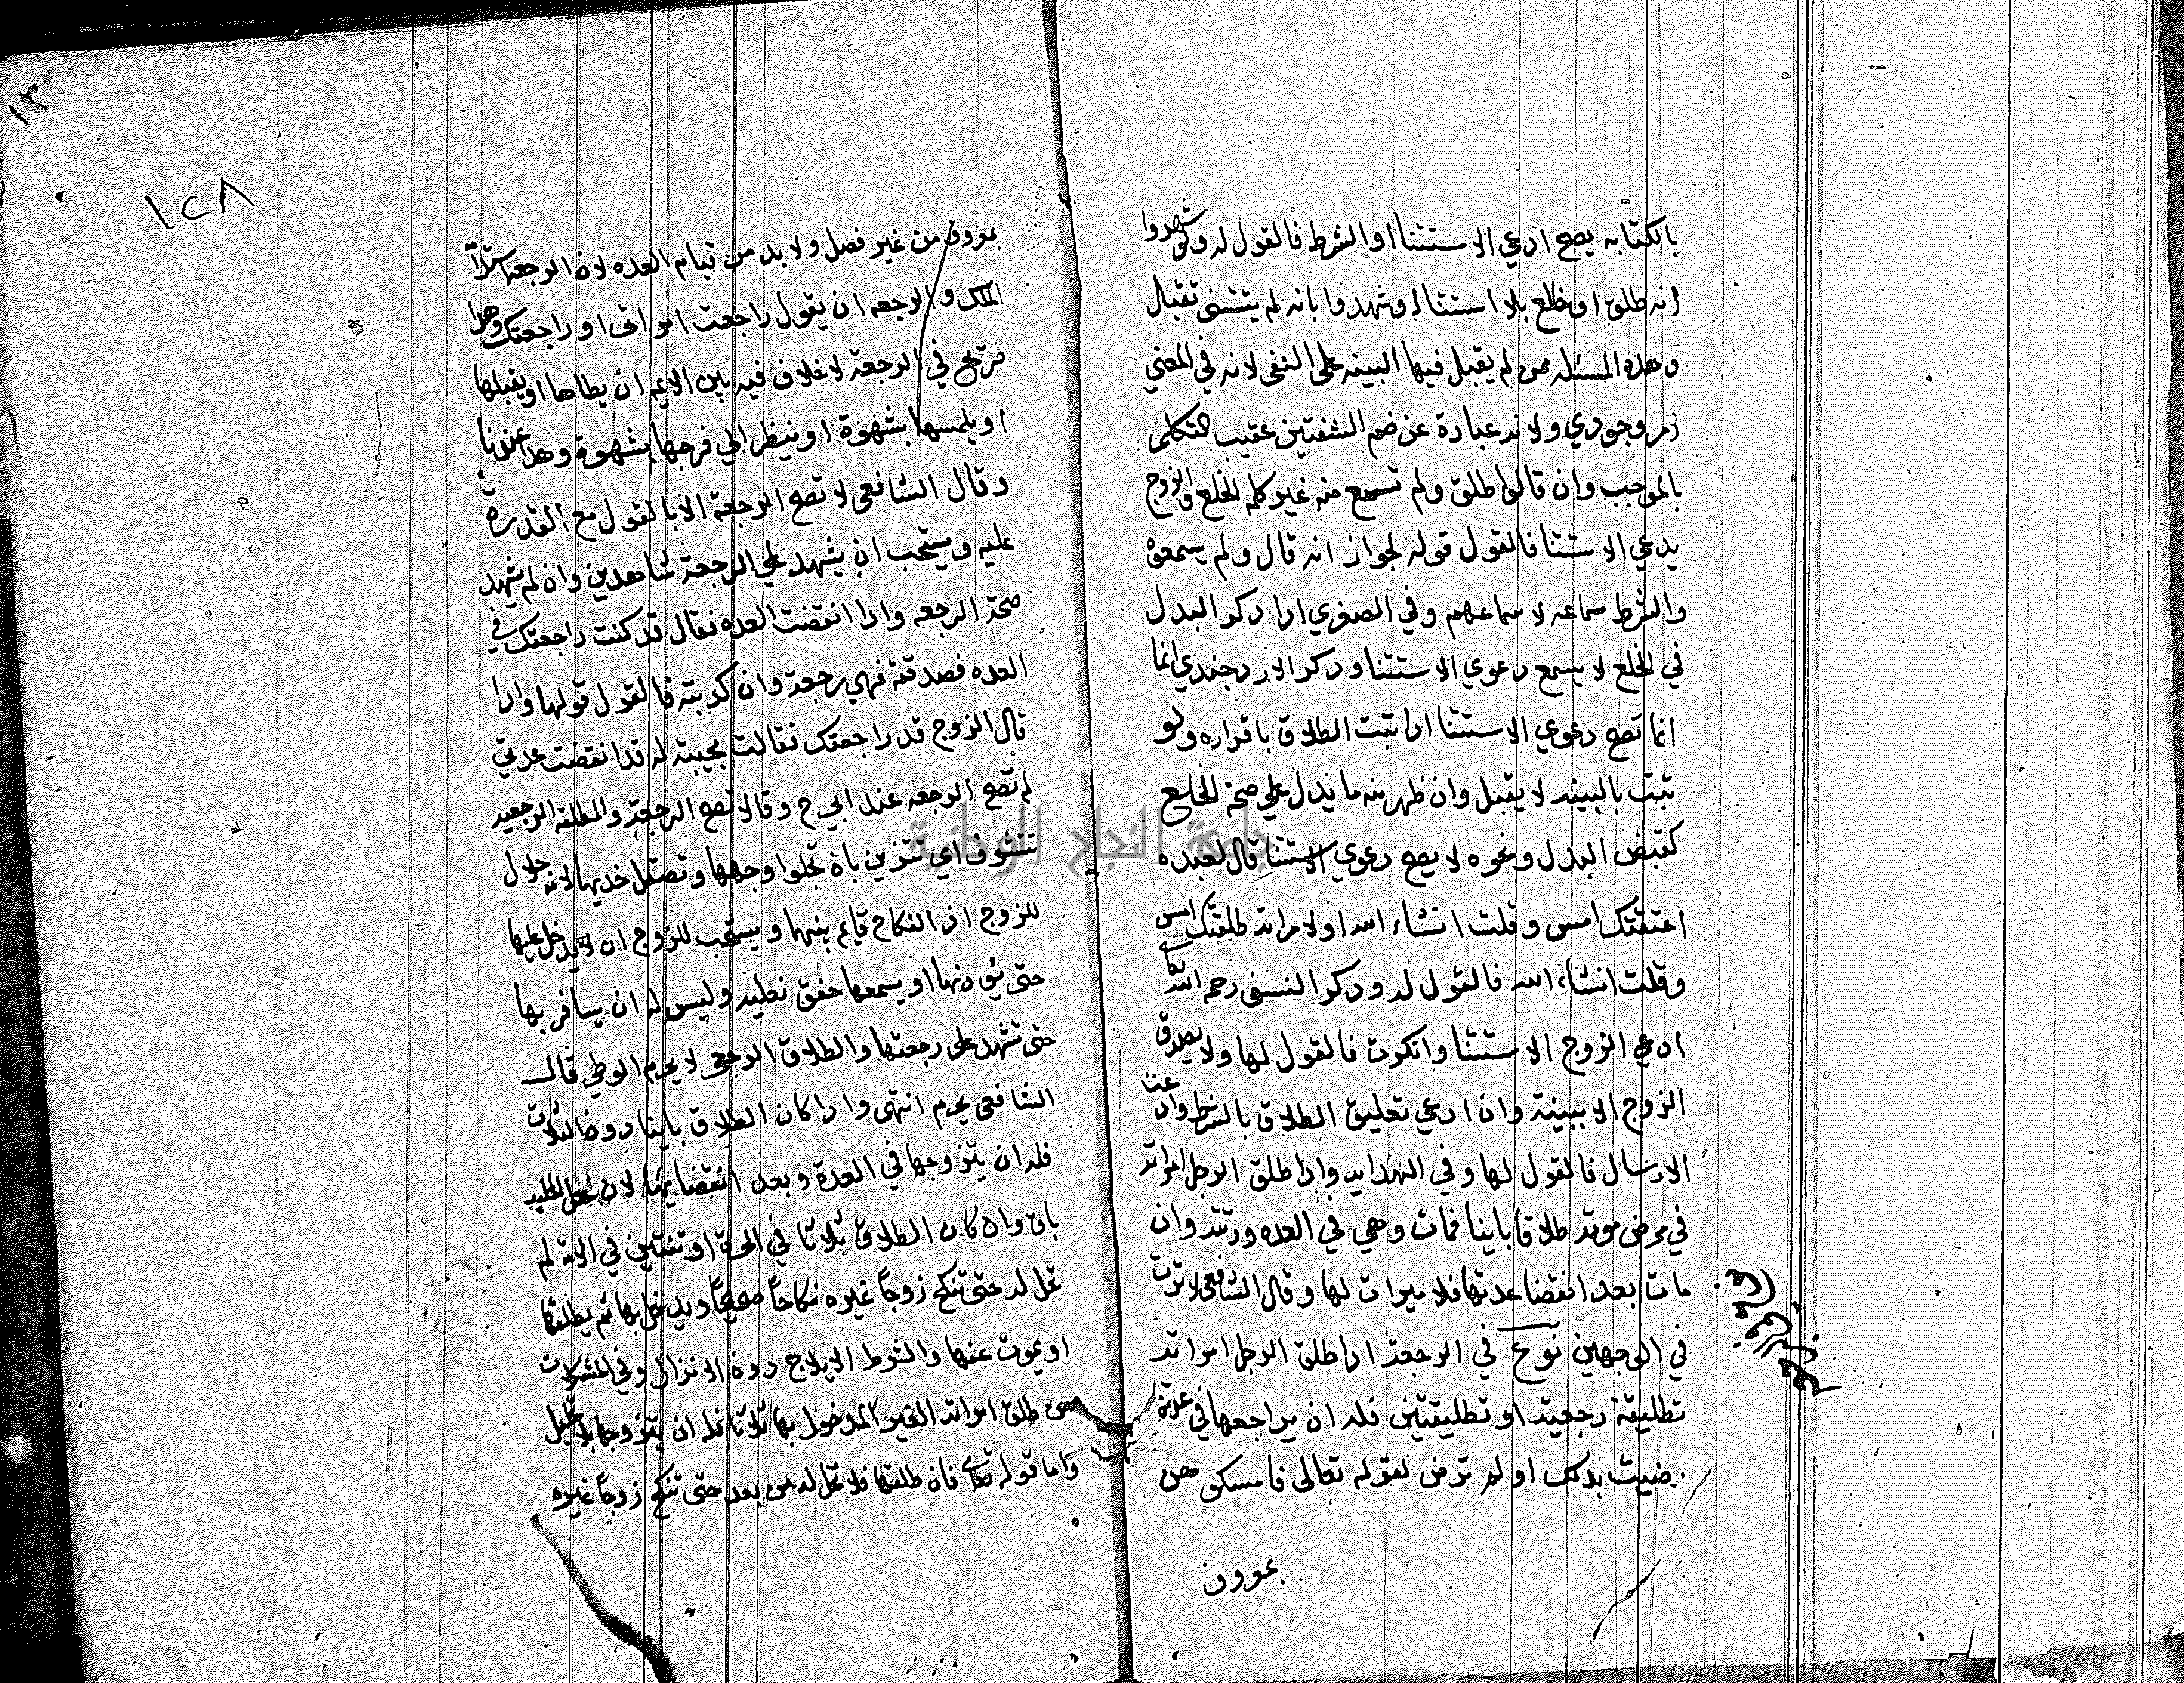 بالكتابه يصح ادعي الاستثنا او الشرط فالقول له ولو شهدوا
انه طلق او خالع بلا استثنا او شهدوا بانه لم يستثنى تقبل
وهذه المسئله مما لم يقبل فيها البينه على النفى لانه في المعني
امر وجودي ولانه عبارة عن ضم الشفتين عقيب التكلم
بالموجب وان قالوا طلق ولم نسمع منه غير كلمه الخلع والزوج
يدعي الاستثنا فالقول قوله لجواز انه قال ولم يسمعوه
والشرط سماعه لا سماعهم وفي الصغري ادا دكر البدل
في الخلع لا يسمع دعوي الاستثنا ودكر الاوزجندي انما
انما تصح دعوي الاستثنا ادا ثبت الطلاق باقراره ولو
ثبت بالبينه لا يقبل وان ظهر منه ما يدل علي صحة الخلع
كقبض البدل ونحوه لا يصح دعوي الاستثنا قال لعبده
اعتقتك امس وقلت انشاء الله او لامراته طلقتك امس
وقلت انشاء الله فالقول له ودكر النسفى رحمه الله تعالى
ادعي الزوج الاستثنا وانكرت فالقول لها ولا يصدق
الزوج الا ببينة وان ادعي تعليق الطلاق بالشرط وادعت
الارسال فالقول لها وفي الهدايه وادا طلق الرجل امراته
في مرض موته طلاقا باينا فمات وهي في العده ورثته وان
مات بعد انقضا عدتها فلا ميرات لها وقال الشافعى لا ترث
في الوجهين نوع في الرجعة ادا طلق الرجل امراته
تطليقة رجعية او تطليقتين فله ان يراجعها في عدتها
رضيت بدلك او لم ترض لقوله تعالى فامسكوهن
بمعروف
١٢٨
بمعروف من غير فصل ولا بد من قيام العده لان الرجعة استدامة
الملك والرجعه ان يقول راجعت امراتى او راجعتك وهدا
صريح في الرجعة لا خلاف فيه بين الايمه ان يطاها او يقبلها
او يلمسها بشهوة او ينظر الي فرجها بشهوة وهدا عندنا
وقال الشافعى لا تصح الرجعة الا بالقول مع القدرة
عليه ويستحب ان يشهد علي الرجعة شاهدين وان لم يشهد
صحة الرجعه وادا انقضت العده فقال قد كنت راجعتك في
العده فصدقته فهي رجعة وان كدبته فالقول قولها وادا
قال الزوج قد راجعتك فقالت مجيبة له قد انقضت عدتي
لم تصح الرجعه عند ابي ح وقالا تصح الرجعة والمطلقه الرجعيه
تتشوف اي تتزين بان تجلوا وجهها وتصقل خديها لانه حلال
للزوج اذ النكاح قايم بينهما ويستحب للزوج ان لا يدخل عليها
حتى يؤدنها او يسمعها خفق نعليه وليس له ان يسافر بها
حتى تشهد على رجعتها والطلاق الرجعى لا يحرم الوطي قال
الشافعى يحرم انتهى وادا كان الطلاق باينا دون الثلاث
فله ان يتزوجها في العدة وبعد انقضايها لان حل المحليه
باق وان كان الطلاق ثلاثا في الحرة او ثنتين في الامة لم
تحل له حتى تنكح زوجاً غيره نكاحاً صحيحاً ويدخل بها ثم يطلقها
او يموت عنها والشرط الايلاج دون الانزال وفي المشكلات
من طلق امراته الغير المدخول بها ثلاثا فله ان يتزوجها بلا تحليل
واما قوله تعالى فان طلقها فلا تحل له من بعد حتى تنكح زوجاً غيره
جامعة النجاح الوطنية